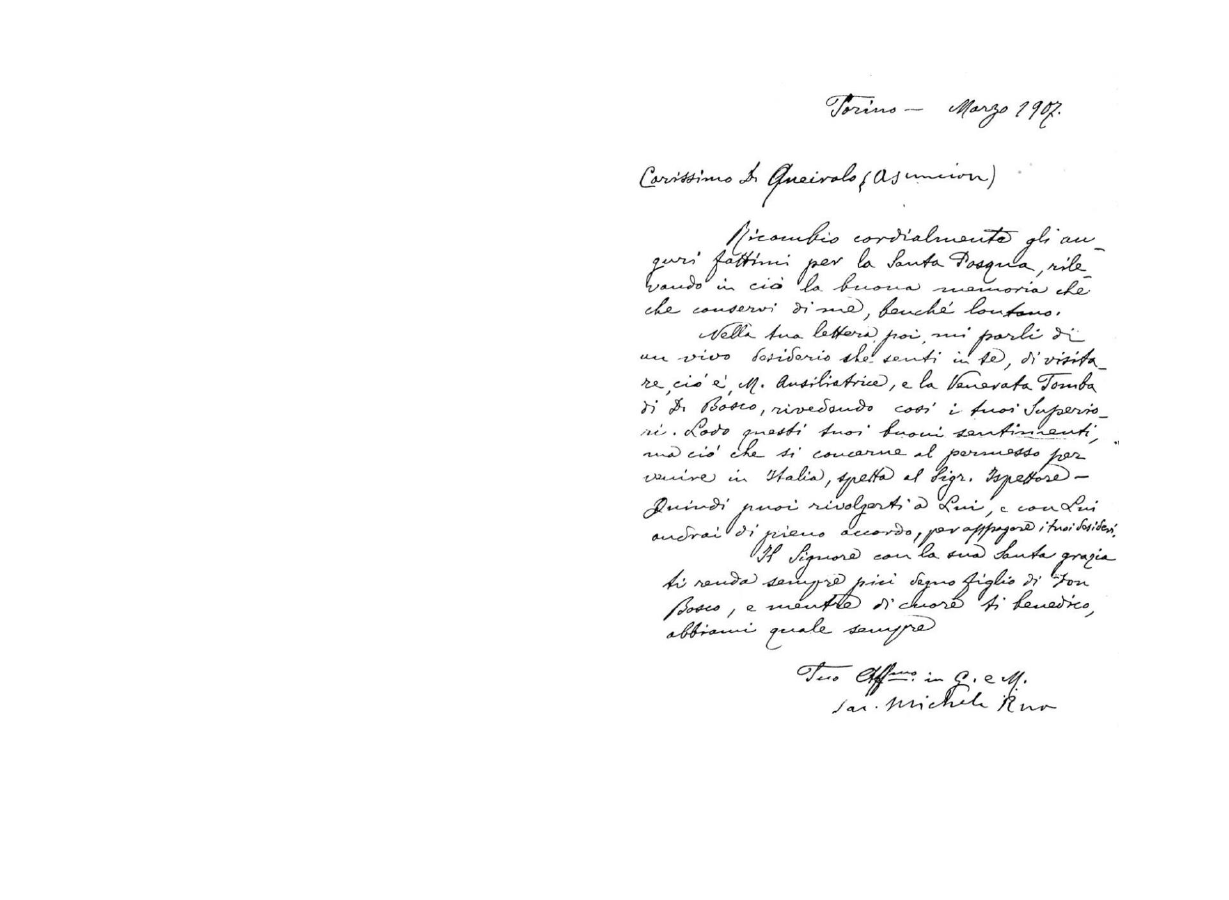 Torino — Marzo 1907.
Carissimo D. Queirolo (Asuncion)
Ricambio cordialmente gli au-
guri fattimi per la Santa Pasqua, rile-
vando in ciò la buona memoria che
che conservi di me, benché lontano.
Nella tua lettera, poi, mi parli di
un vivo desiderio che senti in te, di visita-
re, ció é, M. Ausiliatrice, e la Venerata Tomba
di D. Bosco, rivedendo cosí i tuoi Superio-
ri. Lodo questi tuoi buoni sentimenti,
ma ció che si concerne al permesso per
venire in Italia, spetta al Sigr. Ispettore —
Quindi puoi rivolgerti a Lui, e con Lui
andrai di pieno accordo, per appagare i tuoi desideri.
Il Signore con la sua Santa grazia
ti renda sempre piú degno figlio di Don
Bosco, e mentre di cuore ti benedico,
abbiami quale sempre
Tuo Affmo. in G. e M.
Sac. Michele Rua